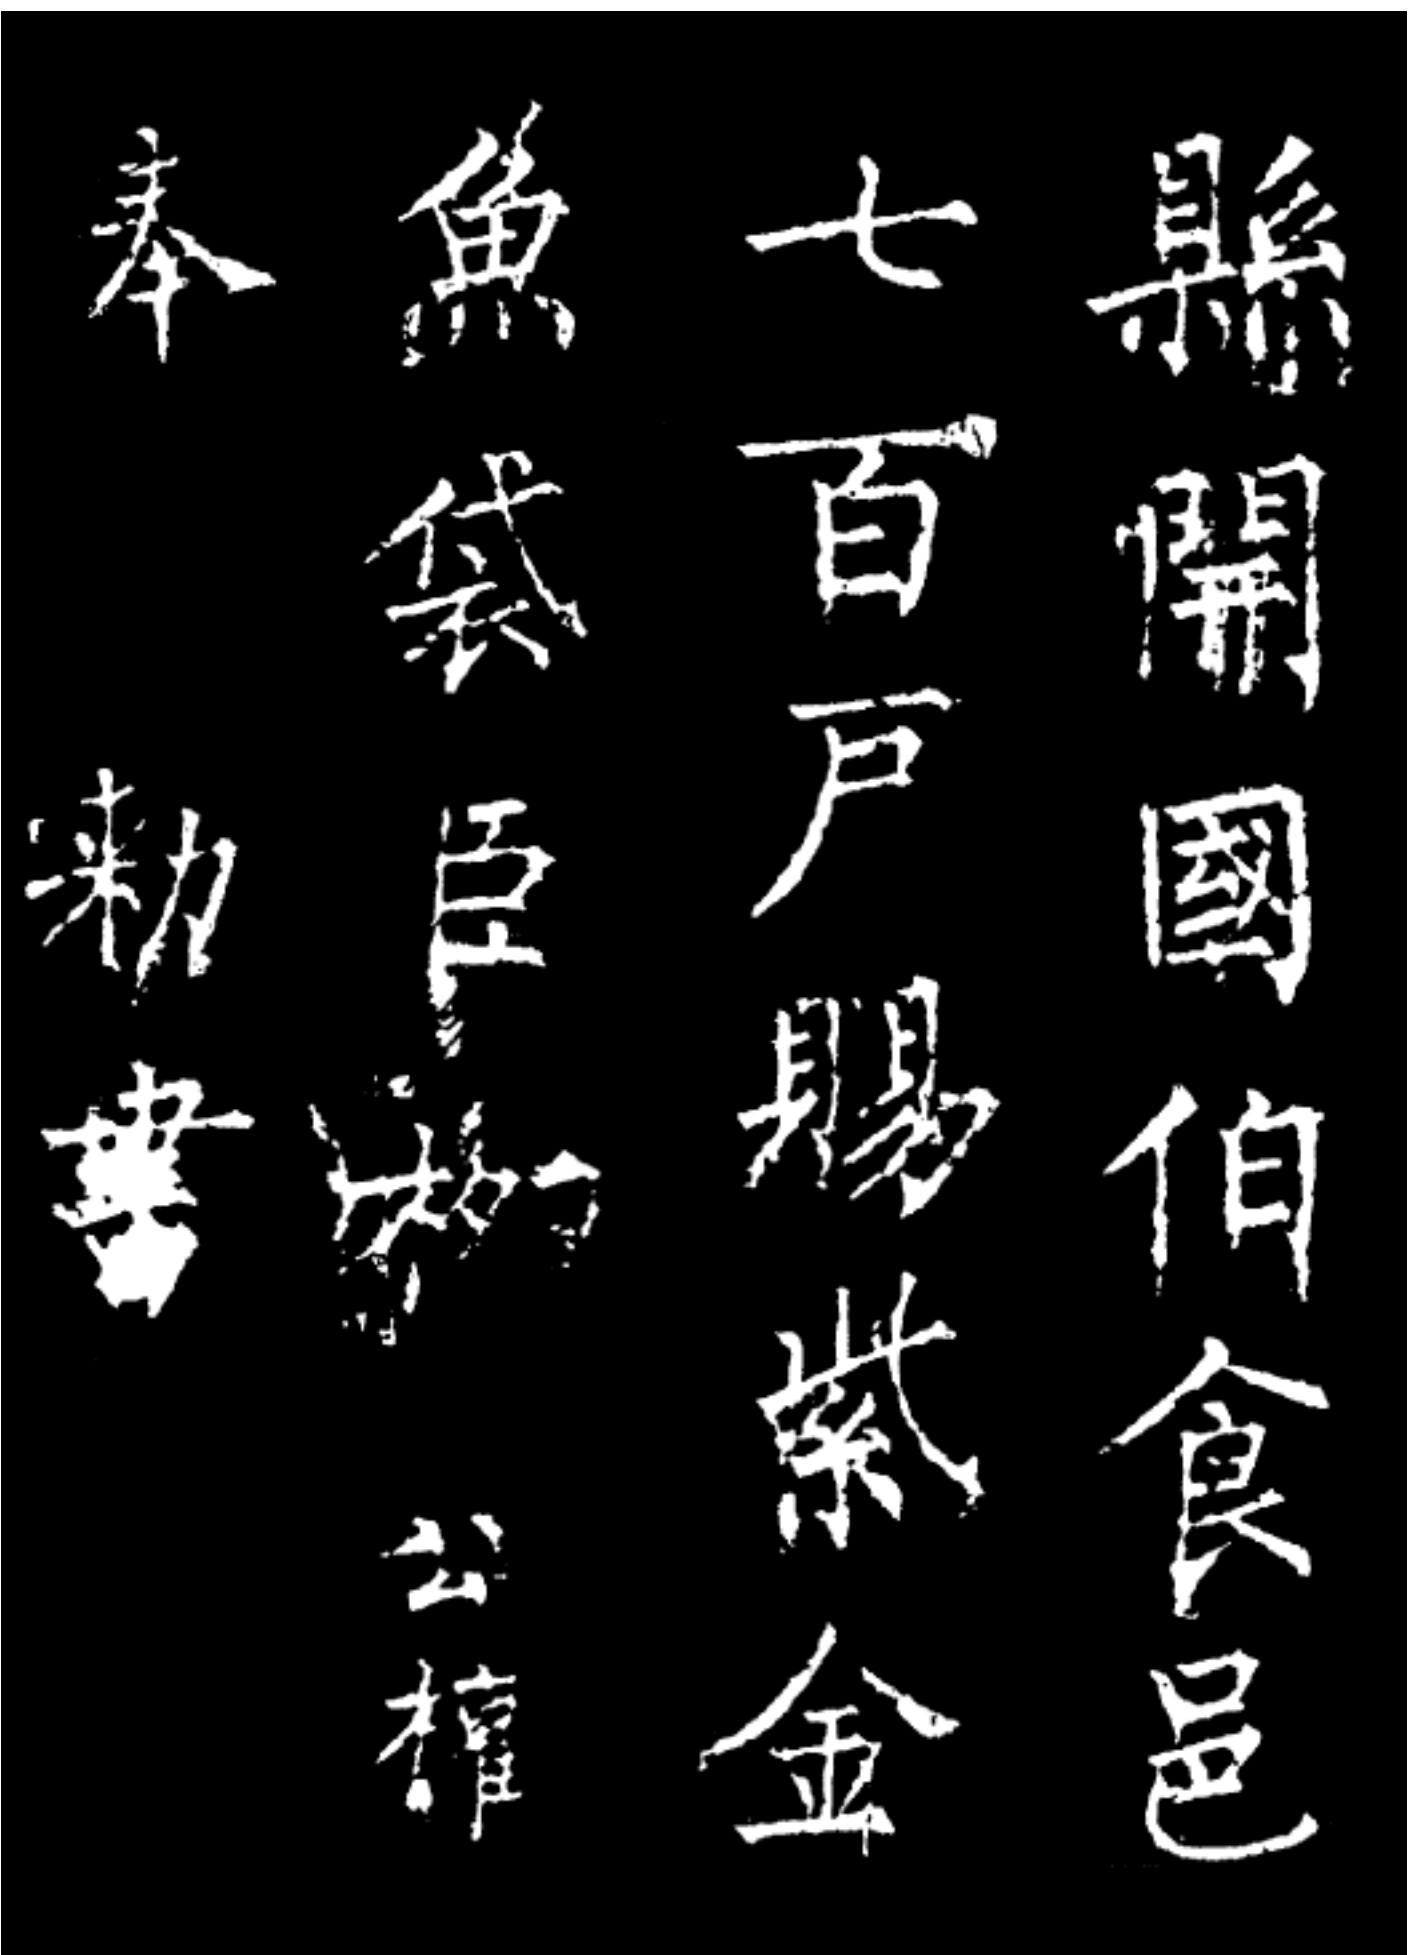 縣開國伯食邑
七百户賜紫金
魚袋臣柳公權
奉敕書